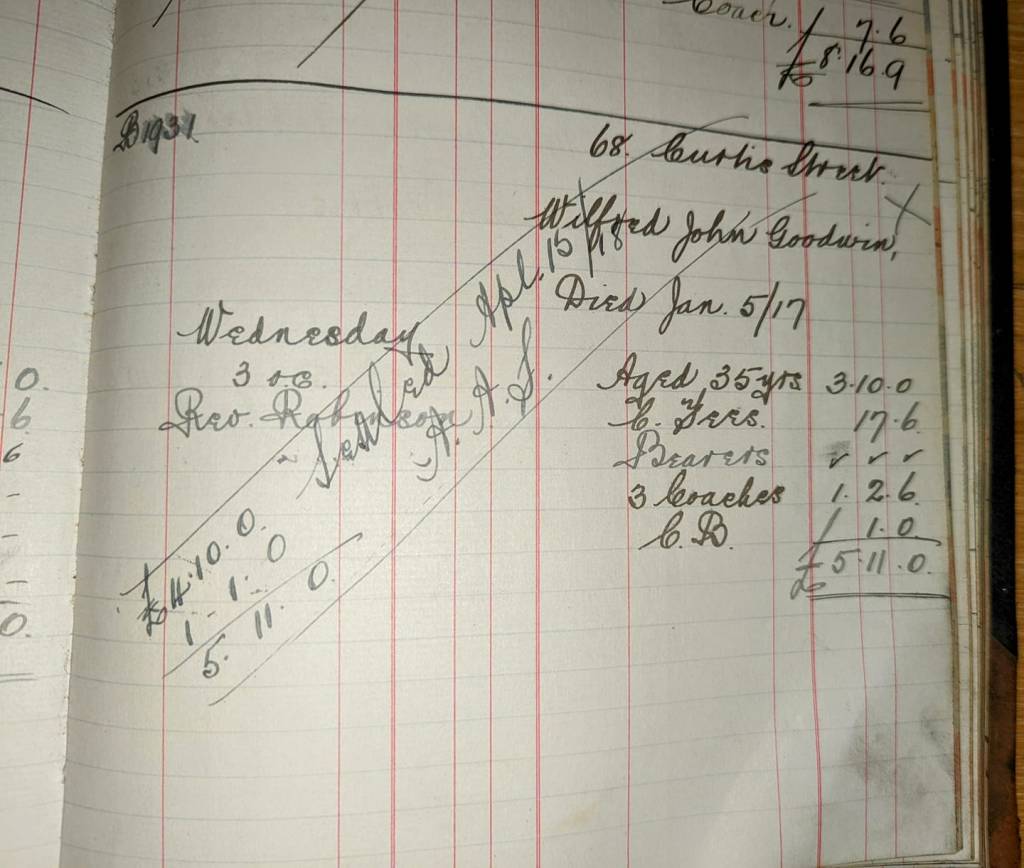 Coach. 7.6
£8.16.9
B1931
68. Curtis Street.
Wilfred John Goodwin,
Died Jan. 5/17
Wednesday
3 o.c.
Rev. Robertson
Aged 35 yrs 3.10.0
C. Fees. 17.6
Bearers ✓ ✓ ✓
3 Coaches 1.2.6
C.B. 1.0
£5.11.0
Settled Apl. 15/18
A. A. S.
£4.10.0.
1.1.0
5.11.0.
0.
6.
6
-
-
-
0.